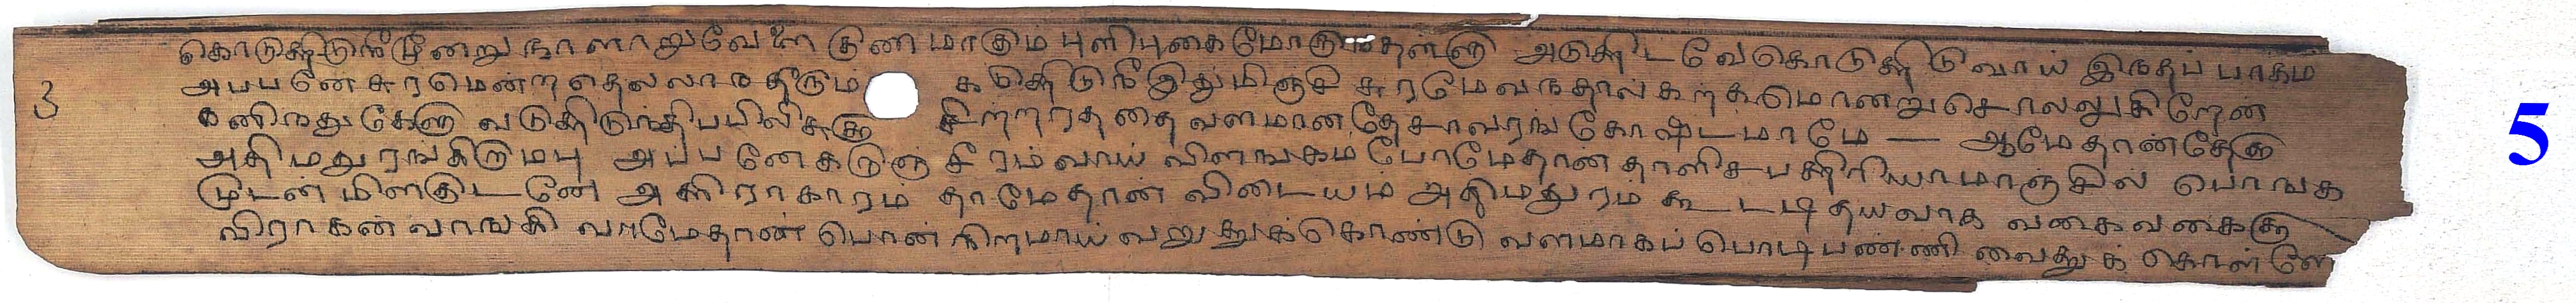 கொடுத்திடுநீமூனறு நாளாறுவேளை குணமாகும புளிபுகை மோருதள்ளு அடுத்திடவே கொடுத்திடுவாய் இநதப் பாகம்
3 அபபனே சுரமென்ற தெலலாந தீரும் கடுத்திடுநீ இதுமிஞ்சி சுரமேவநதால கற்கமொனறு சொலலுகிறேன்
கனிநதுகேளு வடுத்திடுநதிபபிலிசுக்கு சித்தரததை வளமான தேசாவரங் கோஷ்டமாமே — ஆமேதான்கேளு
அதிமதுரங்கிருமபு அப்பனே கருஞ்சீரம் வாய்விளங்கம் போமேதான தாளிசபத்திரியாமாஞ்சில் பொங்க
முடன் மிளகுடனே அத்திராகாரம் தாமேதான் விடையம் அதிமதுரம் கூடடி தயவாக வகைவகைக்கு
விராகன் வாங்கி வாமேதான் பொன் நிறமாய் வறுத்துக்கொண்டு வளமாகப் பொடிபண்ணி வைத்துக் கொள்ளே
5